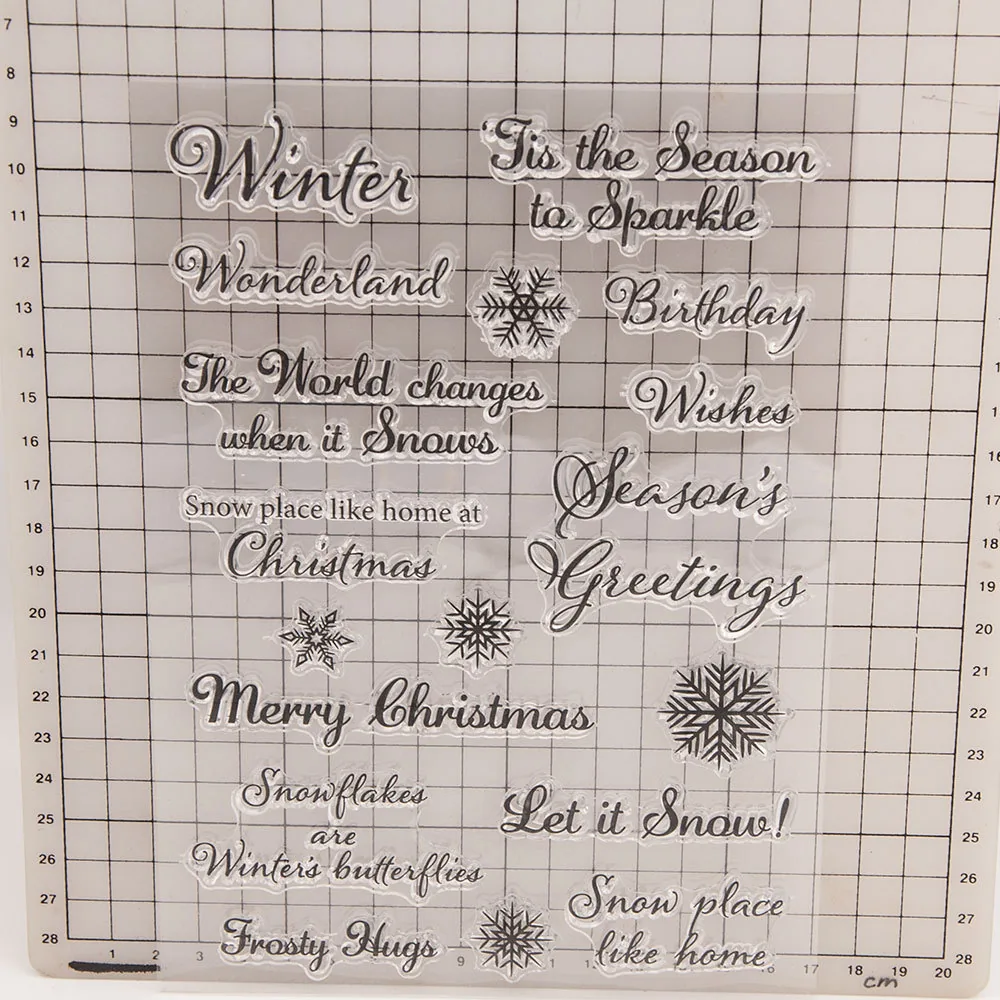 Winter
'Tis the Season
to Sparkle
Wonderland
Birthday
The World changes
when it Snows
Wishes
Snow place like home at
Christmas
Season's
Greetings
Merry Christmas
Snowflakes
are
Winter's butterflies
Let it Snow!
Frosty Hugs
Snow place
like home
7
8
9
10
11
12
13
14
15
16
17
18
19
20
21
22
23
24
25
26
27
28
16
17
18
19
20
21
22
23
24
25
26
27
28
1
2
3
9
16
17
18
19
20
cm